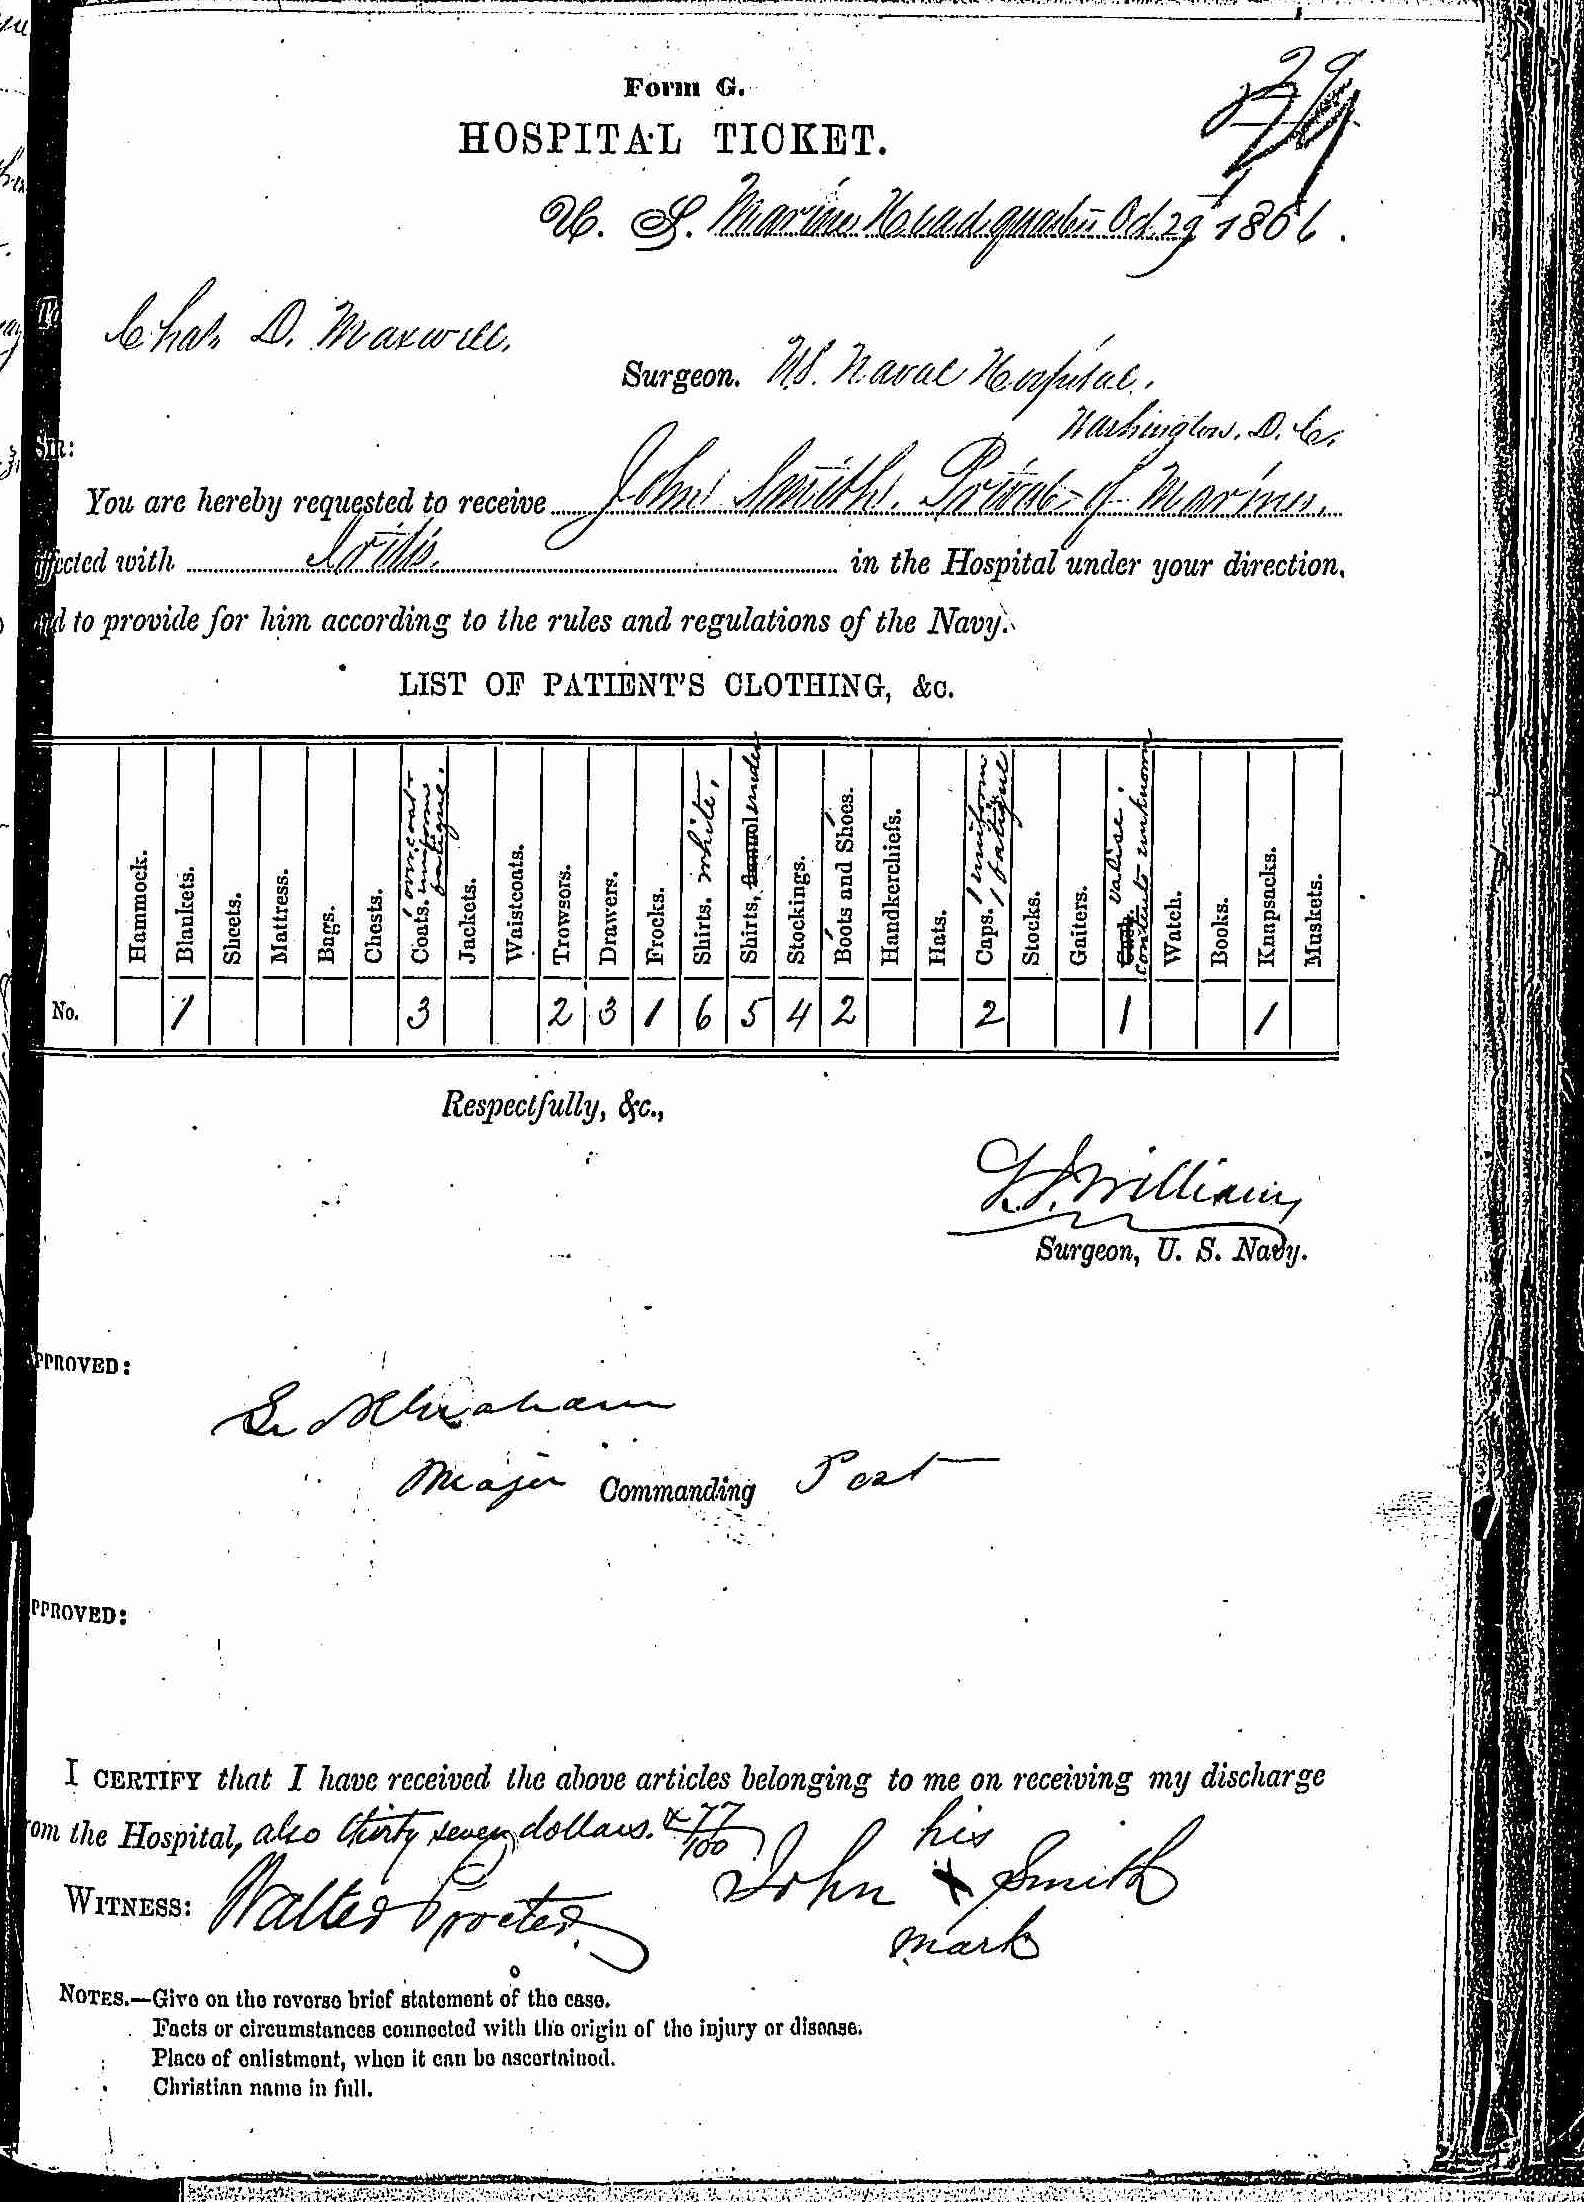 Form G.
HOSPITAL TICKET.
U. S. Marine Head quarters Oct 29 1866.
To
Chas D. Maxwell.
Surgeon. U.S. Naval Hospital.
Washington. D. C.
Sir:
You are hereby requested to receive John Smith. Private of Marines.
affected with Iritis. in the Hospital under your direction,
and to provide for him according to the rules and regulations of the Navy.
LIST OF PATIENT'S CLOTHING, &c.
Hammock.
Blankets.
Sheets.
Mattress.
Bags.
Chests.
Coats. overcoat uniform fatigue.
Jackets.
Waistcoats.
Trowsors.
Drawers.
Frocks.
Shirts. white.
Shirts, flannel under
Stockings.
Boots and Shoes.
Handkerchiefs.
Hats.
Caps. 1 uniform 1 fatigue
Stocks.
Gaiters.
Cash. valise. contents unknown
Watch.
Books.
Knapsacks.
Muskets.
No. 1 3 2 3 1 6 5 4 2 2 1 1
Respectfully, &c.,
Williams
Surgeon, U. S. Navy.
APPROVED:
Major Commanding Post
APPROVED:
I CERTIFY that I have received the above articles belonging to me on receiving my discharge
from the Hospital, also thirty seven dollars. & 77/100
his
WITNESS: Walter Procter. John X Smith
mark
NOTES.—Give on the reverse brief statement of the case.
Facts or circumstances connected with the origin of the injury or disease.
Place of enlistment, when it can be ascertained.
Christian name in full.